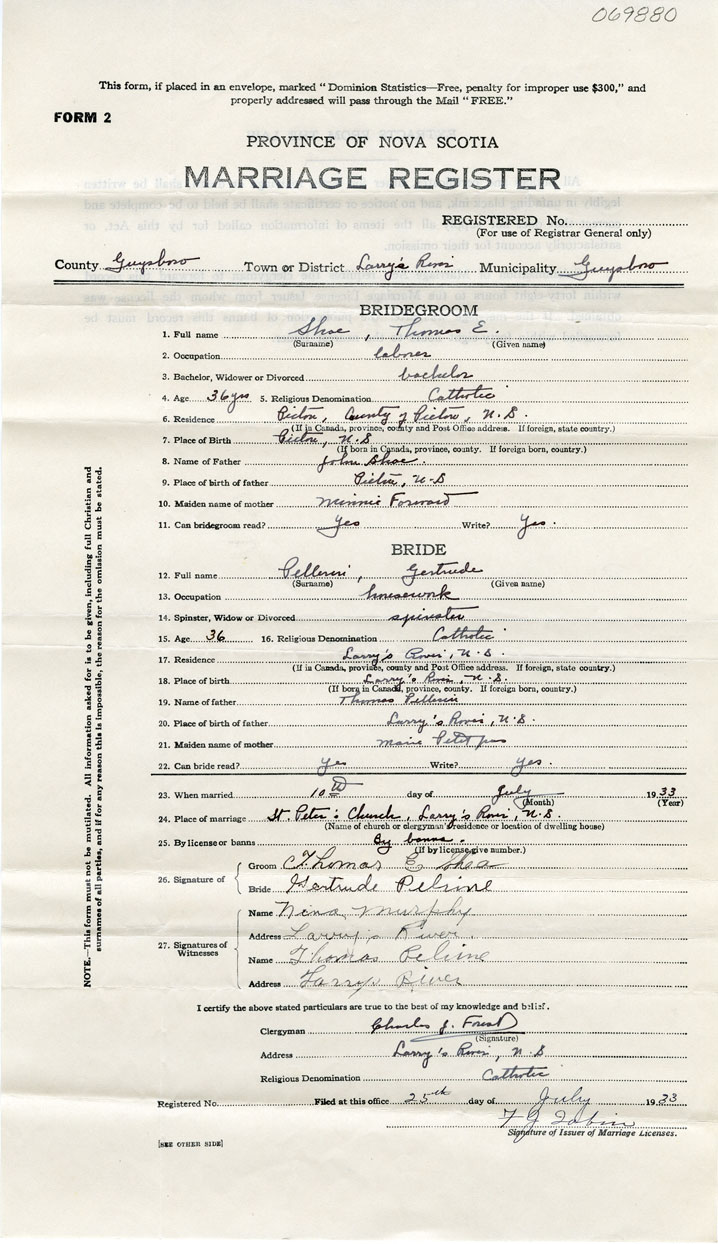 069880
This form, if placed in an envelope, marked "Dominion Statistics—Free, penalty for improper use $300," and
properly addressed will pass through the Mail "FREE."
FORM 2
PROVINCE OF NOVA SCOTIA
MARRIAGE REGISTER
REGISTERED No.
(For use of Registrar General only)
County Guysboro Town or District Larry's River Municipality Guysboro
BRIDEGROOM
1. Full name Shae, Thomas E.
(Surname) (Given name)
2. Occupation laborer
3. Bachelor, Widower or Divorced bachelor
4. Age 36 yrs 5. Religious Denomination Catholic
6. Residence Pictou, County of Pictou, N.S.
(If in Canada, province, county and Post Office address. If foreign, state country.)
7. Place of Birth Pictou, N.S
(If born in Canada, province, county. If foreign born, country.)
8. Name of Father John Shae.
9. Place of birth of father Pictou, N-S
10. Maiden name of mother Minnie Forward
11. Can bridegroom read? Yes Write? Yes.
BRIDE
12. Full name Pellerin, Gertrude
(Surname) (Given name)
13. Occupation housework
14. Spinster, Widow or Divorced spinster
15. Age 36 16. Religious Denomination Catholic
17. Residence Larry's River, N.S.
(If in Canada, province, county and Post Office address. If foreign, state country.)
18. Place of birth Larry's River, N.S.
(If born in Canada, province, county. If foreign born, country.)
19. Name of father Thomas Pellerin
20. Place of birth of father Larry's River, N.S.
21. Maiden name of mother Marie Petitpas
22. Can bride read? Yes Write? Yes.
23. When married 10th day of July 1933
(Month) (Year)
24. Place of marriage St. Peter's Church, Larry's River, N.S.
(Name of church or clergyman's residence or location of dwelling house)
25. By license or banns By banns.
(If by license, give number.)
26. Signature of Groom Thomas E Shea
Bride Gertrude Peline
27. Signatures of Witnesses Name Nina Murphy
Address Larry's River.
Name Thomas Peline
Address Larrys River
I certify the above stated particulars are true to the best of my knowledge and belief.
Clergyman Charles J. Forest
(Signature)
Address Larry's River, N.S
Religious Denomination Catholic
Registered No. Filed at this office 25th day of July 1933
F J Tobin
Signature of Issuer of Marriage Licenses.
[SEE OTHER SIDE]
NOTE.—This form must not be mutilated. All information asked for is to be given, including full Christian and
surnames of all parties, and if for any reason this is impossible, the reason for the omission must be stated.